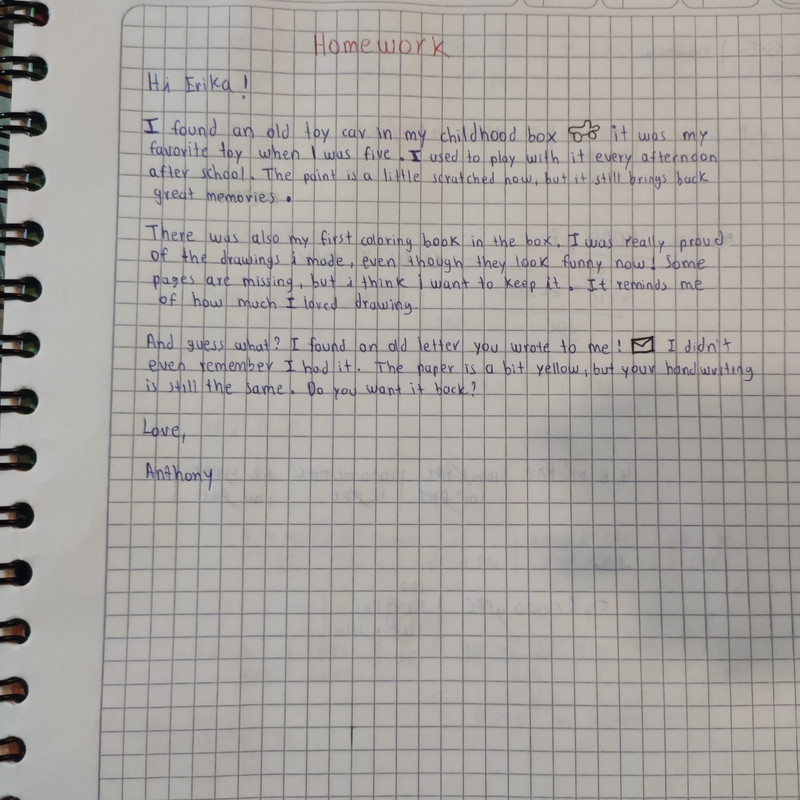 Homework
Hi Erika!
I found an old toy car in my childhood box it was my
favorite toy when I was five. I used to play with it every afternoon
after school. The paint is a little scratched now, but it still brings back
great memories.
There was also my first coloring book in the box. I was really proud
of the drawings i made, even though they look funny now! Some
pages are missing, but i think i want to keep it. It reminds me
of how much I loved drawing.
And guess what? I found an old letter you wrote to me! I didn't
even remember I had it. The paper is a bit yellow, but your handwriting
is still the same. Do you want it back?
Love,
Anthony